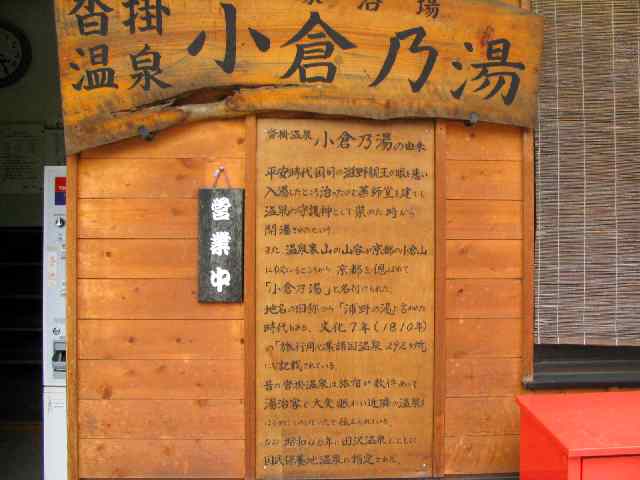 沓掛
温泉
小倉乃湯
営業中
沓掛温泉 小倉乃湯の由来
平安時代国司の滋野親王が眼を患い
入湯したところ治ったので薬師堂を建てて
温泉の守護神として祭った時から
開湯されたという。
また 温泉裏山の山容が京都の小倉山
に似ているところから 京都を偲ばれて
「小倉乃湯」と名付けられた。
地名の旧称から「浦野の湯」と言われた
時代もあり、文化7年(1810年)
の「旅行用心集諸国温泉292ヶ所
にも記載されている。
昔の沓掛温泉は旅宿が数件あって
湯治客で大変賑わい近隣の温泉
なお 昭和46年に田沢温泉とともに
国民保養地温泉に指定された。